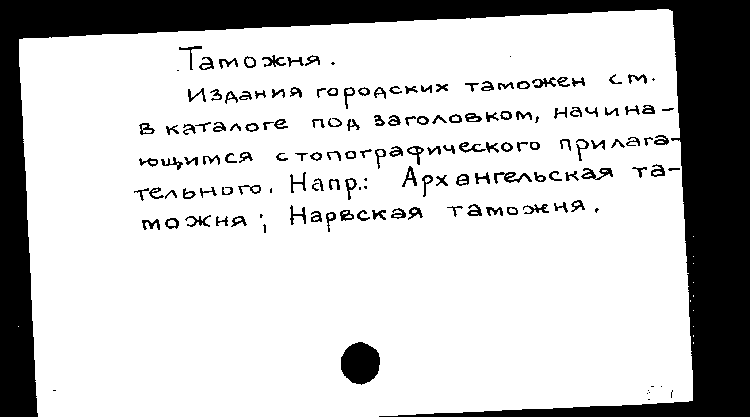 Таможня.
Издания городских таможен см.
в каталоге под заголовком, начина-
ющимся с топографического прилага-
тельного. Напр.: Архангельская та-
можня; Нарвская таможня.